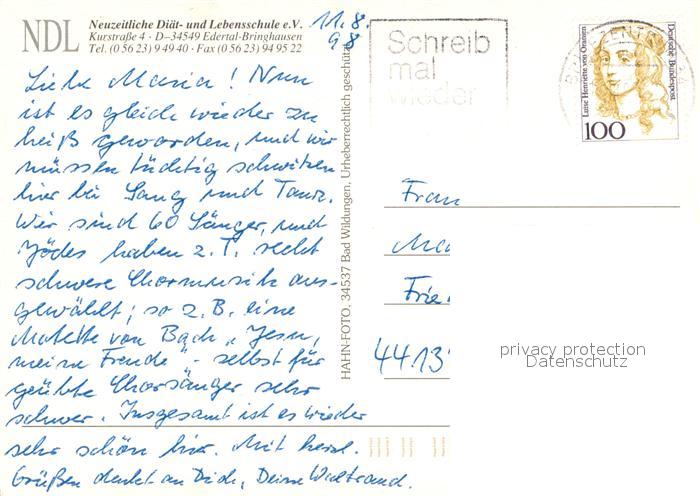 NDL
Neuzeitliche Diät- und Lebensschule e.V.
Kurstraße 4 · D–34549 Edertal-Bringhausen
Tel. (0 56 23) 9 49 40 · Fax (0 56 23) 94 95 22
11.8.
98
Liebe Maria! Nun
ist es gleich wieder zu
heiß geworden, und wir
müssen tüchtig schwitzen
hier bei Sang und Tanz.
Wir sind 60 Sänger, und
Jödes haben z. T. recht
schwere Chormusik aus-
gewählt; so z. B. eine
Motette von Bach „Jesu,
meine Freude" - selbst für
geübte Chorsänger sehr
schwer. Insgesamt ist es wieder
sehr schön hier. Mit herzl.
Grüßen denkt an Dich, Deine Waltraud.
HAHN-FOTO, 34537 Bad Wildungen, Urheberrechtlich geschützt
Schreib
mal
wieder
Luise Henriette von Oranien
Deutsche Bundespost
100
BRIEFZENTRUM
Frau
Ma
Frie
4413
privacy protection
Datenschutz